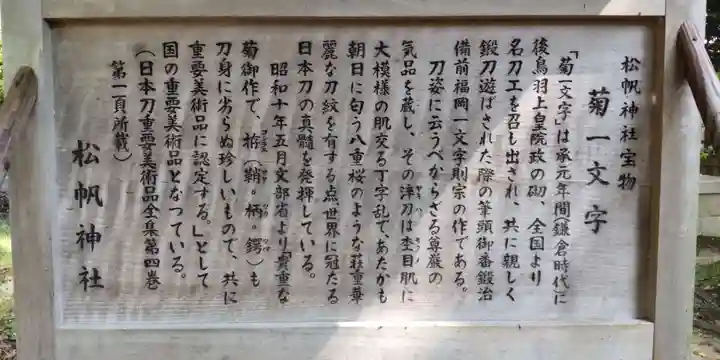 松帆神社宝物
菊一文字
「菊一文字」は承元年間(鎌倉時代)に
後鳥羽上皇院政の砌、全国より
名刀工を召し出され、共に親しく
鍛刀遊ばされた際の筆頭御番鍛治
備前福岡一文字則宗の作である。
刀姿に云うべからざる尊厳の
気品を蔵し、その滓刀は杢目肌に
大模様の肌交る丁字乱で、あたかも
朝日に匂う八重桜のような荘重華
麗な刀紋を有する点、世界に冠たる
日本刀の真髄を発揮している。
昭和十年五月文部省より「貴重な
菊御作で、拵(鞘。柄。鍔)も
刀身に劣らぬ珍しいもので、共に
重要美術品に認定する。」として
国の重要美術品となつている。
(日本刀重要美術品全集第四巻
第一頁所載)
松帆神社